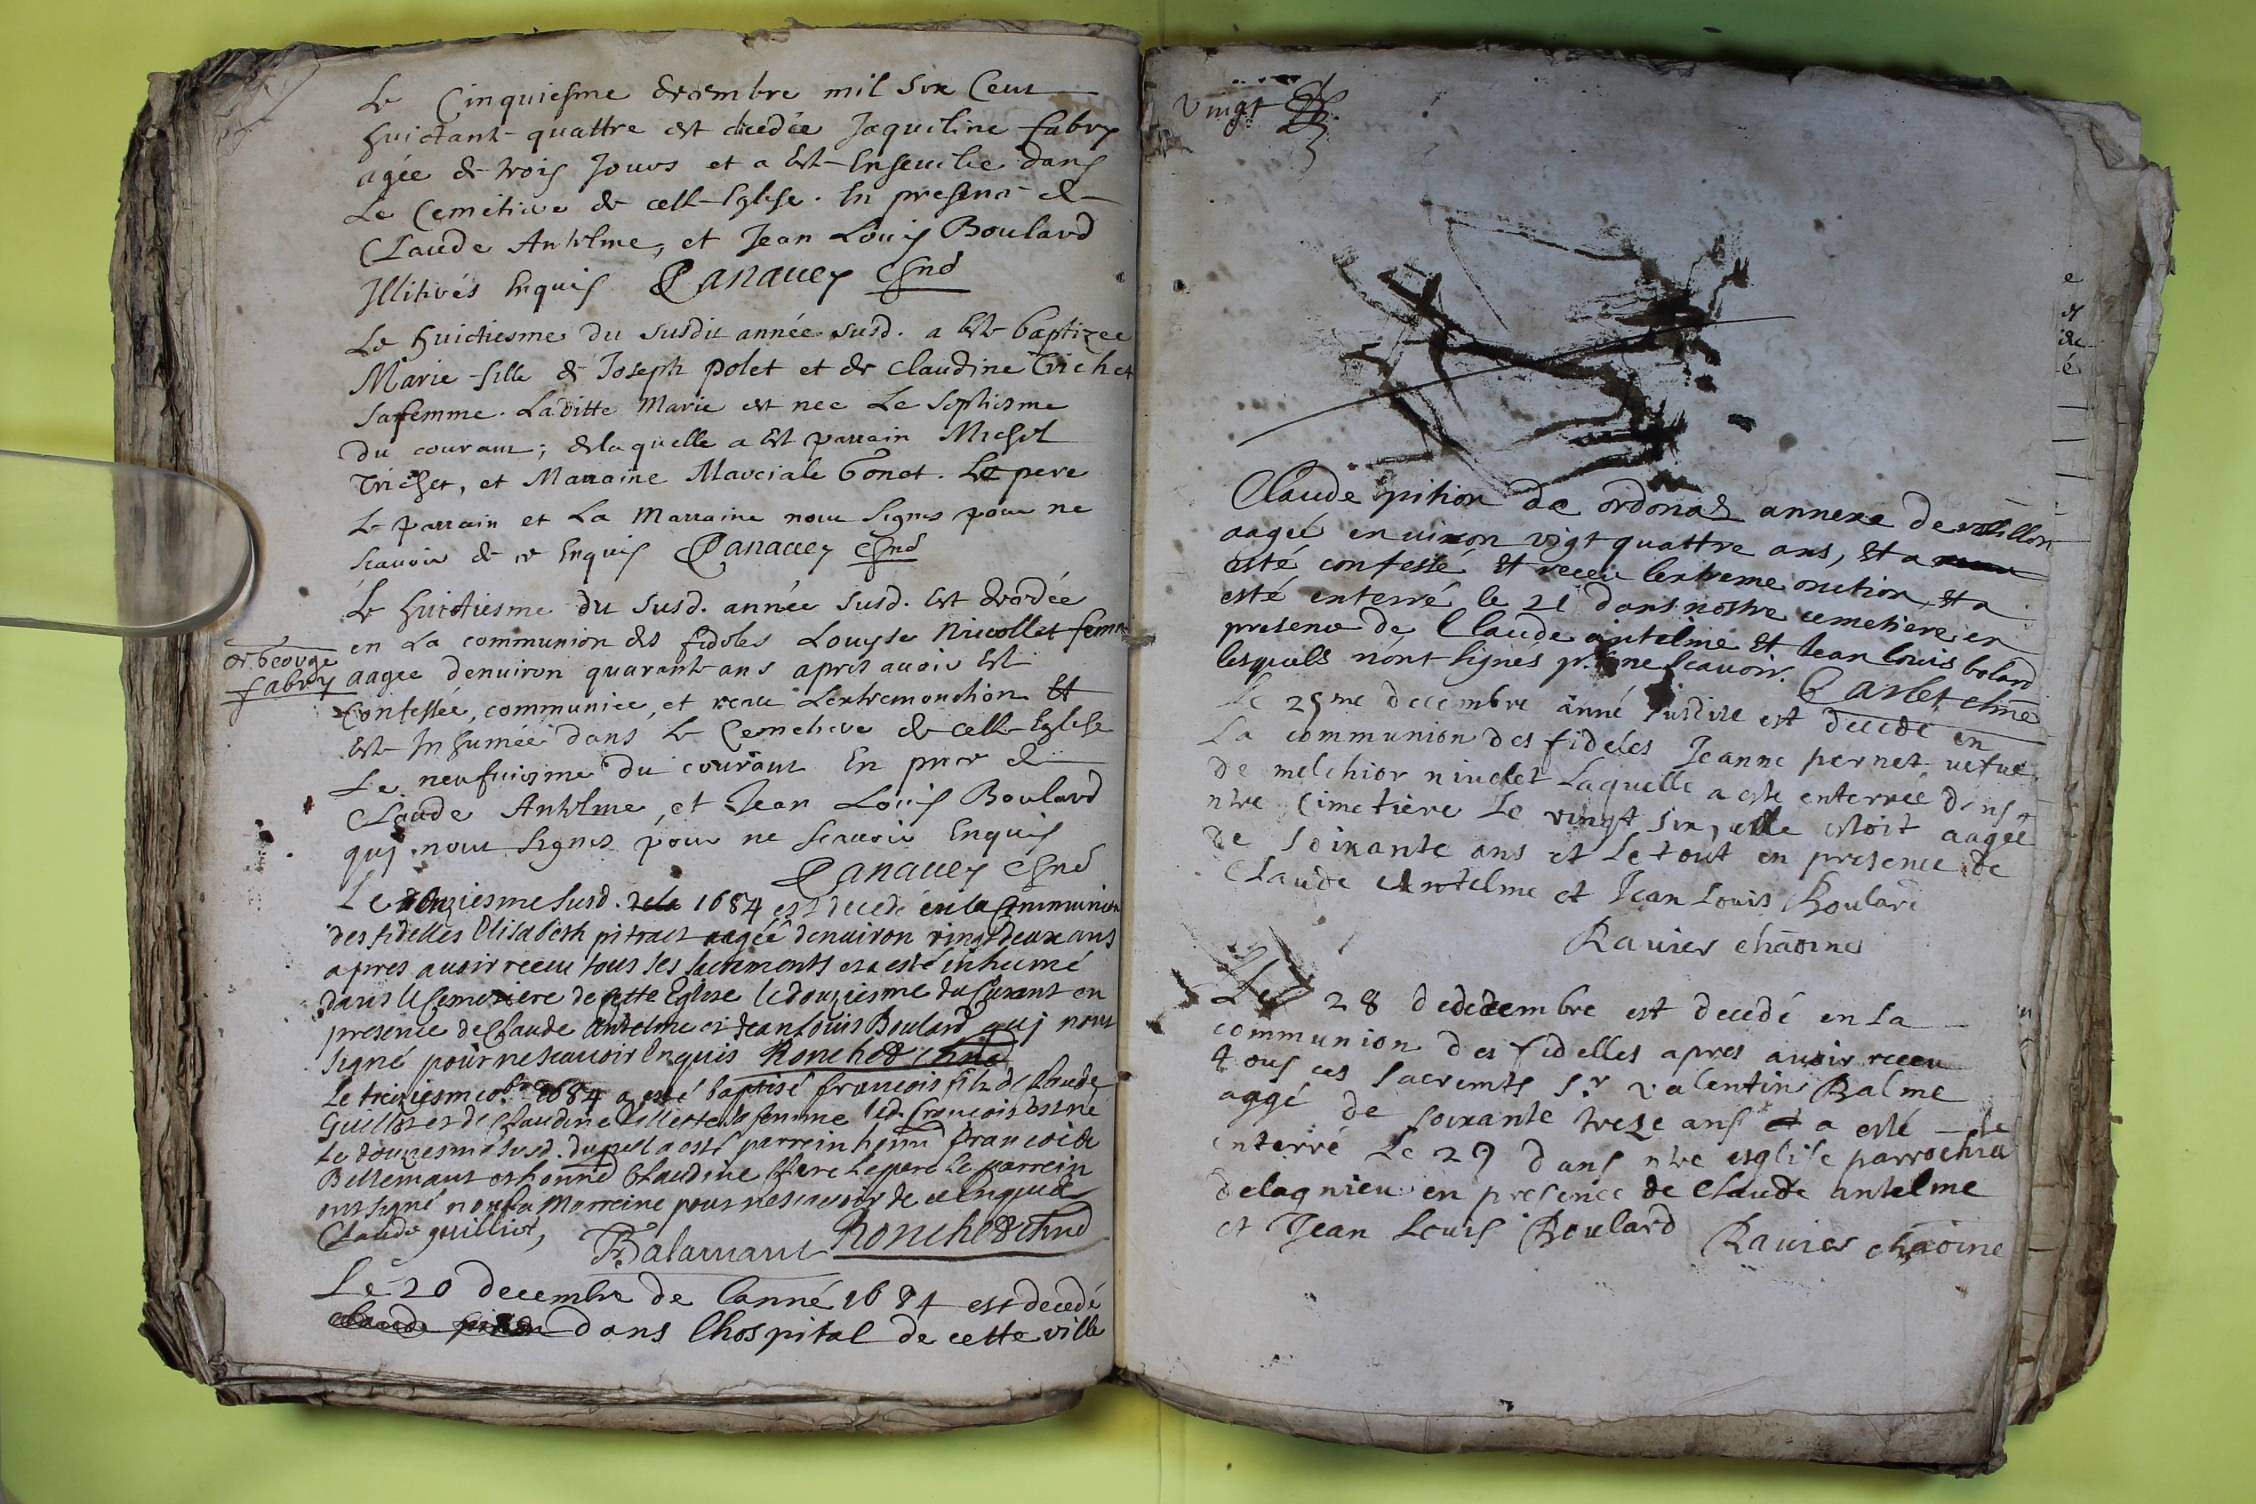 Le Cinquiesme decembre mil six Cent
huictante quattre est decedée Jaqueline fabry
agée de trois Jours et a esté Ensevelie dans
Le Cemetiere de cette Eglise. En presence de
Claude Antelme, et Jean Louis Boulard
Illitirés Enquis Panavey chne
Le huictiesme du susdit année susd. a esté baptizee
Marie fille de Joseph polet et de Claudine Trichet
sa femme. Laditte Marie est nee Le septiesme
du courant; de laquelle a esté parrain Michel
Trichet, et Marraine Marciale Gonet. Le pere
Le parrain et La Marraine nont signes pour ne
scavoir de ce Enquis Panavey chne
Le huictiesme du susd. année susd. Est decedée
en La communion des fidoles Louyse Nicollet femme
de George
fabry
aagee denviron quarante ans apres avoir esté
Confessée, communiee, et receu Lextremonction Et
Este Inhumée dans Le Cemetiere de cette Eglise
Le neufviesme du courant En pnce de
Claude Antelme, et Jean Louis Boulard
qui nont signes pour ne scavoir Enquis
Panavey chne
Le susd. 1684 est decedé en la Communion
des fidelles Elisabeth pitract aagéé denviron vingt deux ans
apres avoir receu tous ses sacrements et a esté inhumé
dans le Cemetiere de cette Eglise le douziesme du Curant en
presence de Claude Antelme et Jean Louis Boulard qui nont
signé pour ne scavoir Enquis Ronchod chne
Le treiziesme xbre 1684 a esté baptisé francois filz de Claude
Guilliot et de Claudine sa femme led. francois est né
Le douziesme susd. duquel a esté parrein francois de
et Claudine Le pere Le parrein
ont signé non la Marreine pour ne scavoir de ce Enquise
Claude guilliot, Ronchod chne
Le 20 decembre de lanné 1684 est decedé
claude dans lhospital de cette ville
vingt
Claude pition de ordonas annexe de
aagé environ vigt quattre ans, Et a
esté confessé Et receu lextreme onction, Et a
esté enterré le 21 dans nostre cemetiere en
presence de Claude antelme Et Jean louis bolard
lesquels nont signés pr. ne scavoir. chne
Le 25me decembre anné susdite est decede en
La communion des fideles Jeanne pernet vefve
de melchior nivolet Laquelle a este enterrée dans
ntre Cimetiere Le vingt six, elle estoit aagée
de soixante ans et Le tout en presence de
Claude Antelme et Jean Louis Boulard
Ravier chãoine
Le 28 decembre est decedé en La
communion des fidelles apres avoir receu
tous ces sacremts Sr. valentin Balme
aagé de soixante treze ans et a esté
enterré Le 29 dans ntre esglise parrochialle
delagnieu en presence de Claude antelme
et Jean Louis Boulard Ravier chãoine